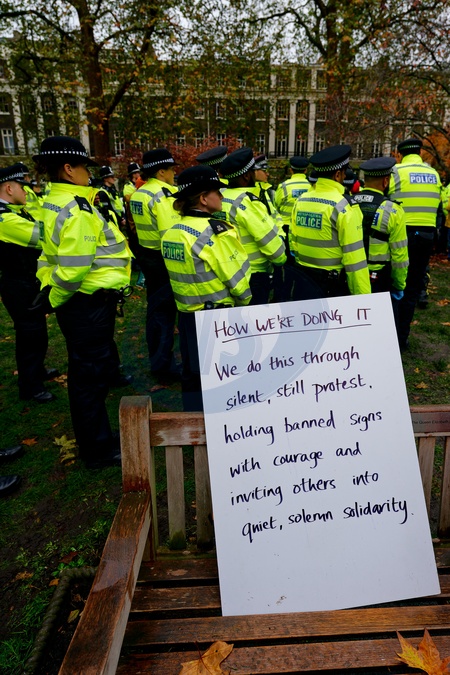 POLICE
POLICE
POLICE
POLICE
POLICE
HOW WE'RE DOING IT
We do this through
silent, still protest.
holding banned signs
with courage and
inviting others into
quiet, solemn solidarity.